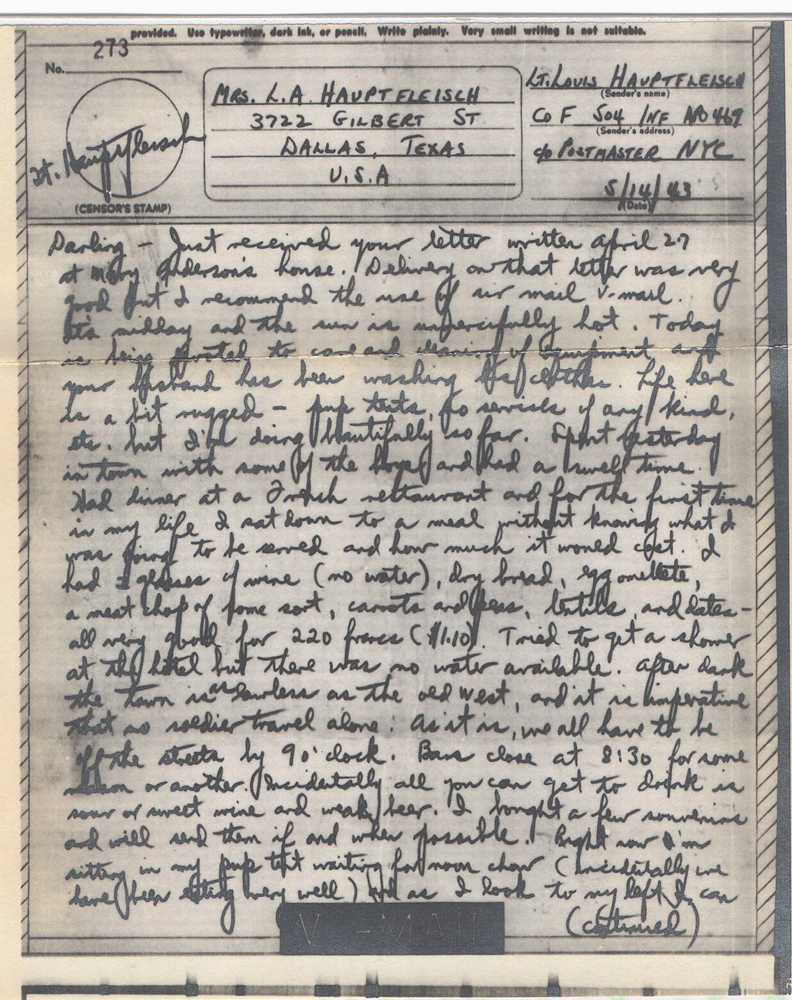 provided. Use typewriter, dark ink, or pencil. Write plainly. Very small writing is not suitable.
No. 273
Lt. Hauptfleisch
(CENSOR'S STAMP)
MRS. L.A. HAUPTFLEISCH
3722 GILBERT ST
DALLAS, TEXAS
U.S.A
LT. LOUIS HAUPTFLEISCH
(Sender's name)
CO F 504 INF APO 469
(Sender's address)
c/o POSTMASTER NYC
5/14/43
(Date)
Darling – Just received your letter written April 27
at Mary Anderson's house. Delivery on that letter was very
good but I recommend the use of air mail V-mail.
It's midday and the sun is unmercifully hot. Today
is being devoted to care and cleaning of equipment and
your husband has been washing his clothes. Life here
is a bit rugged – pup tents, no services of any kind,
etc. but I'm doing beautifully so far. Spent yesterday
in town with some of the boys and had a swell time.
Had dinner at a French restaurant and for the first time
in my life I sat down to a meal without knowing what I
was going to be served and how much it would cost. I
had 2 glasses of wine (no water), dry bread, egg omellete,
a meat chop of some sort, carrots and peas, lentils, and dates –
all very good for 220 francs ($1.10). Tried to get a shower
at the hotel but there was no water available. After dark
the town is as lawless as the old west, and it is imperative
that no soldier travel alone. As it is, we all have to be
off the streets by 9 o'clock. Bars close at 8:30 for some
reason or another. Incidentally all you can get to drink is
sour or sweet wine and weak beer. I bought a few souvenirs
and will send them if and when possible. Right now I'm
sitting in my pup tent waiting for noon chow (incidentally we
have been eating very well) and as I look to my left I can
(continued)
V-MAIL